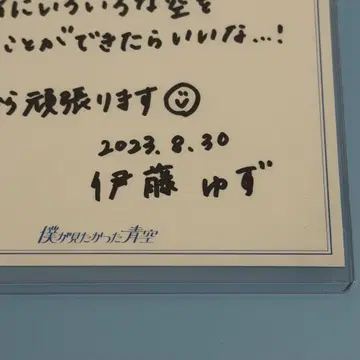 にいろいろな空を
ことができたらいいな…!
ら頑張ります
2023.8.30
伊藤 ゆず
僕が見たかった青空